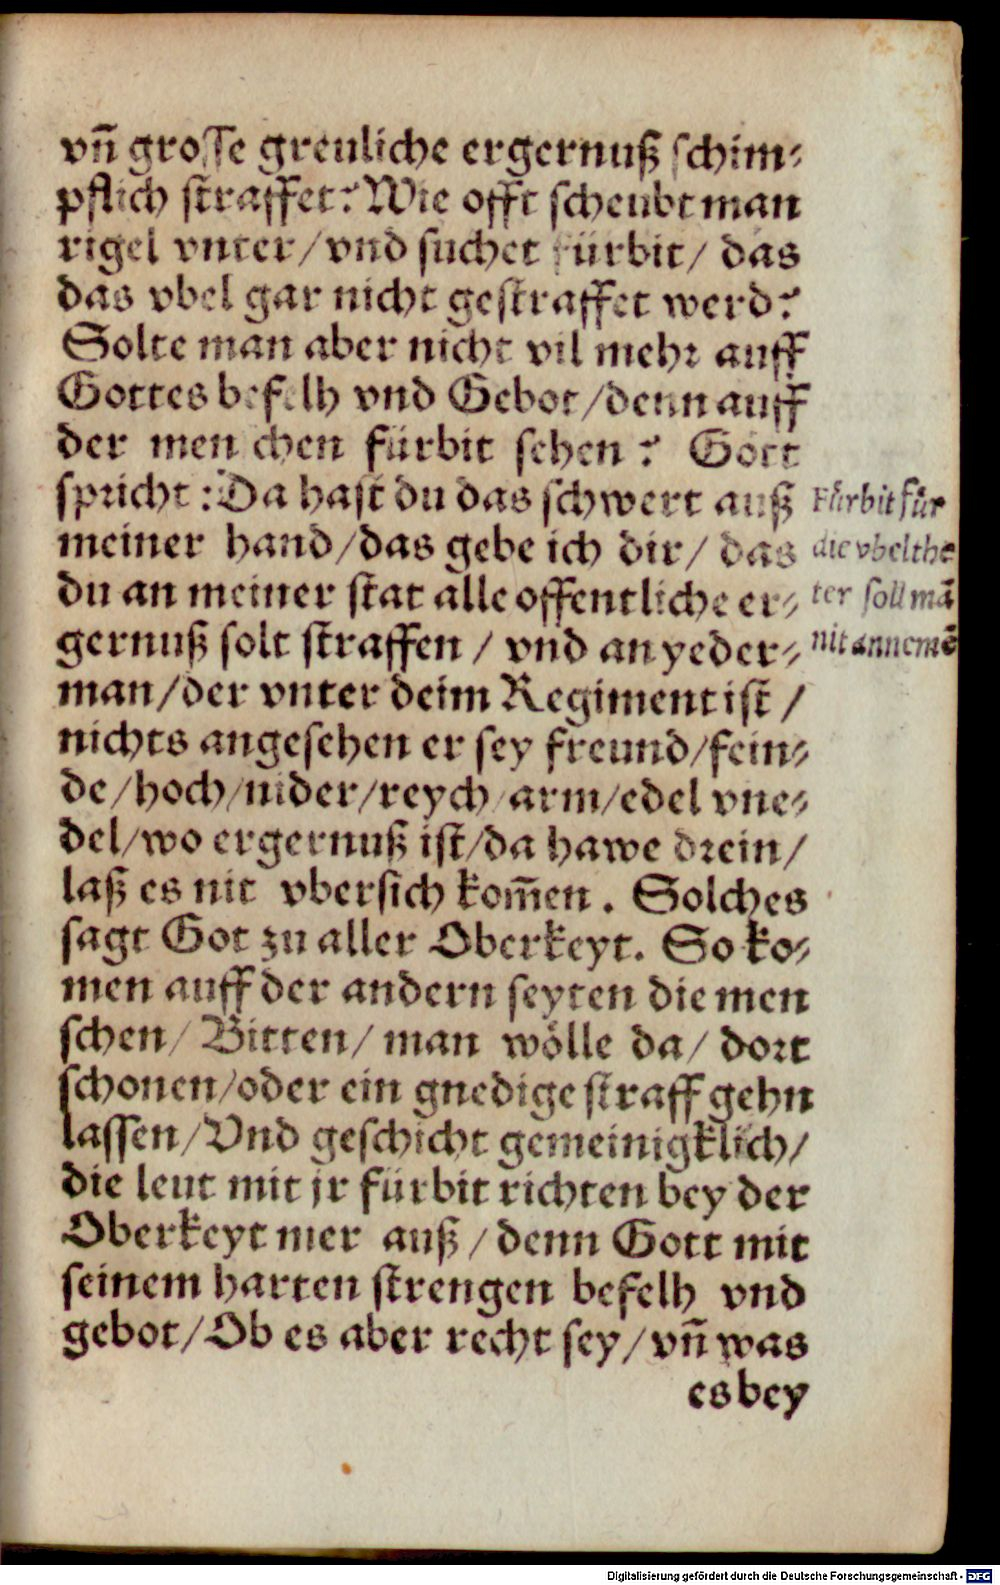 vn̄ grosse greuliche ergernuß schim⸗
pflich straffet? Wie offt scheubt man
rigel vnter/vnd suchet fürbit/ das
das vbel gar nicht gestraffet werd?
Solte man aber nicht vil mehr auff
Gottes befelh vnd Gebot/denn auff
der menschen fürbit sehen? Gott
spricht: Da hast du das schwert auß
meiner hand/das gebe ich dir/ das
du an meiner stat alle offentliche er⸗
gernuß solt straffen/ vnd an yeder⸗
man/der vnter deim Regiment ist/
nichts angesehen er sey freund/fein⸗
de/hoch/nider/reych/arm/edel vne⸗
del/wo ergernuß ist/da hawe drein/
laß es nit vbersich kom̄en. Solches
sagt Got zu aller Oberkeyt. So ko⸗
men auff der andern seyten die men
schen/ Bitten/ man wölle da/ dort
schonen/oder ein gnedige straff gehn
lassen/Vnd geschicht gemeinigklich/
die leut mit jr fürbit richten bey der
Oberkeyt mer auß/denn Gott mit
seinem harten strengen befelh vnd
gebot/Ob es aber recht sey/vn̄ was
es bey
Fürbit für
die vbelthe
ter soll mā
nit annemē
Digitalisierung gefördert durch die Deutsche Forschungsgemeinschaft - DFG